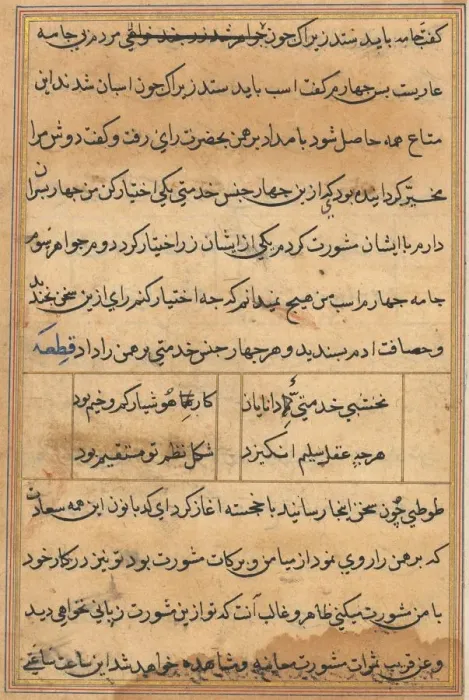 کفت جامه باید ستد زیراک جون مردم بی جامه
عاریت بس جهارم کفت اسب باید ستد زیراک جون اسبان شدند این
متاع همه حاصل شود بامداد برهمن بحضرت رای رفت و کفت دوش مرا
مخیر کردانیده بود کی ازین جهار جنس خدمتی یکی اختیار کن من جهار بسران
دارم با ایشان مشورت کردم یکی از ایشان زر اختیار کرد دوم جواهر سوم
جامه جهارم اسب من هیج نمیدانم که جه اختیار کنم رای ازین سخن بخندید
و حصافت ادم بسندید و هر جهار جنس خدمتی برهمن را داد قطعه
نخشبی خدمتی دانایان کار هوشیار کم وخیم بود
هرجه عقل سلیم انکیزد شکل نظم تو مستقیم بود
طوطی چون سخن اینجا رسانید با خجسته اغاز کرد ای کدبانون این همه سعادت
که برهمن را روی نمود از میامن و برکات مشورت بود تو نیز در کار خود
با من مشورت میکنی ظاهر و غالب آنت که تو ازین مشورت زیانی نخواهی دید
و عن قریب ثمرات مشورت معاینه و مشاهده خواهد شد این ساعت ساعتی